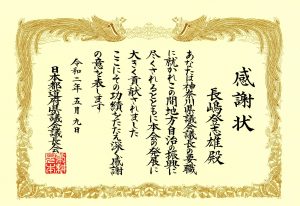 感謝状
長嶋登志雄殿
あなたは神奈川県議会議長の要職
に就かれこの間地方自治の振興に
尽くされるとともに本会の発展に
大きく貢献されました
ここにその功績をたたえ深く感謝
の意を表します
令和二年五月九日
日本都道府県議会議長会